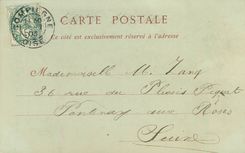 COMPIEGNE
OISE
CARTE POSTALE
Ce côté est exclusivement réservé à l'adresse
Mademoiselle M. Zang
36 rue du Plessis Piquet
Fontenay aux Roses
Seine